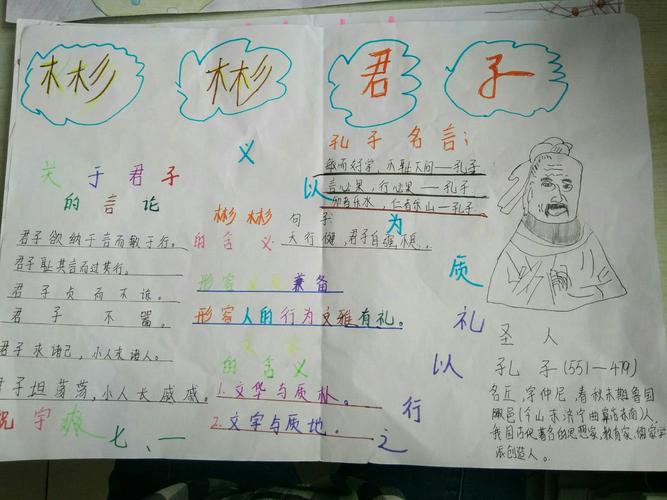 彬彬君子
关于君子
的言论
君子欲纳于言而敏于行。
君子耻其言而过其行。
君子贞而不谅。
君子不器。
君子求诸己,小人求诸人。
君子坦荡荡,小人长戚戚。
七、一
彬彬
的含义
形容
兼备
形容人的行为文雅有礼。
的含义
1.文华与质朴。
2.文字与质地。
句子
天行健,君子自强不息。
义以为质礼以行之
孔子名言:
敏而好学,不耻下问——孔子
言必果,行必果——孔子
乐水,仁者乐山——孔子
圣人
孔子(551—479)
名丘,字仲尼,春秋末期鲁国
陬邑(今山东济宁曲阜市东南)人,
我国古代著名的思想家,教育家,儒家学
派创造人。